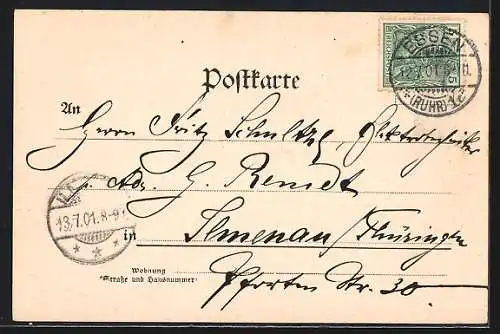 ESSEN
12.7.01.
(RUHR)
Postkarte
An
Herrn Fritz Schultze, Elektrotechniker
p. Adr. G. Remdt
13.7.01. 8-9
in Ilmenau / Thüringen
Wohnung
(Straße und Hausnummer)
Pforten Str. 30.